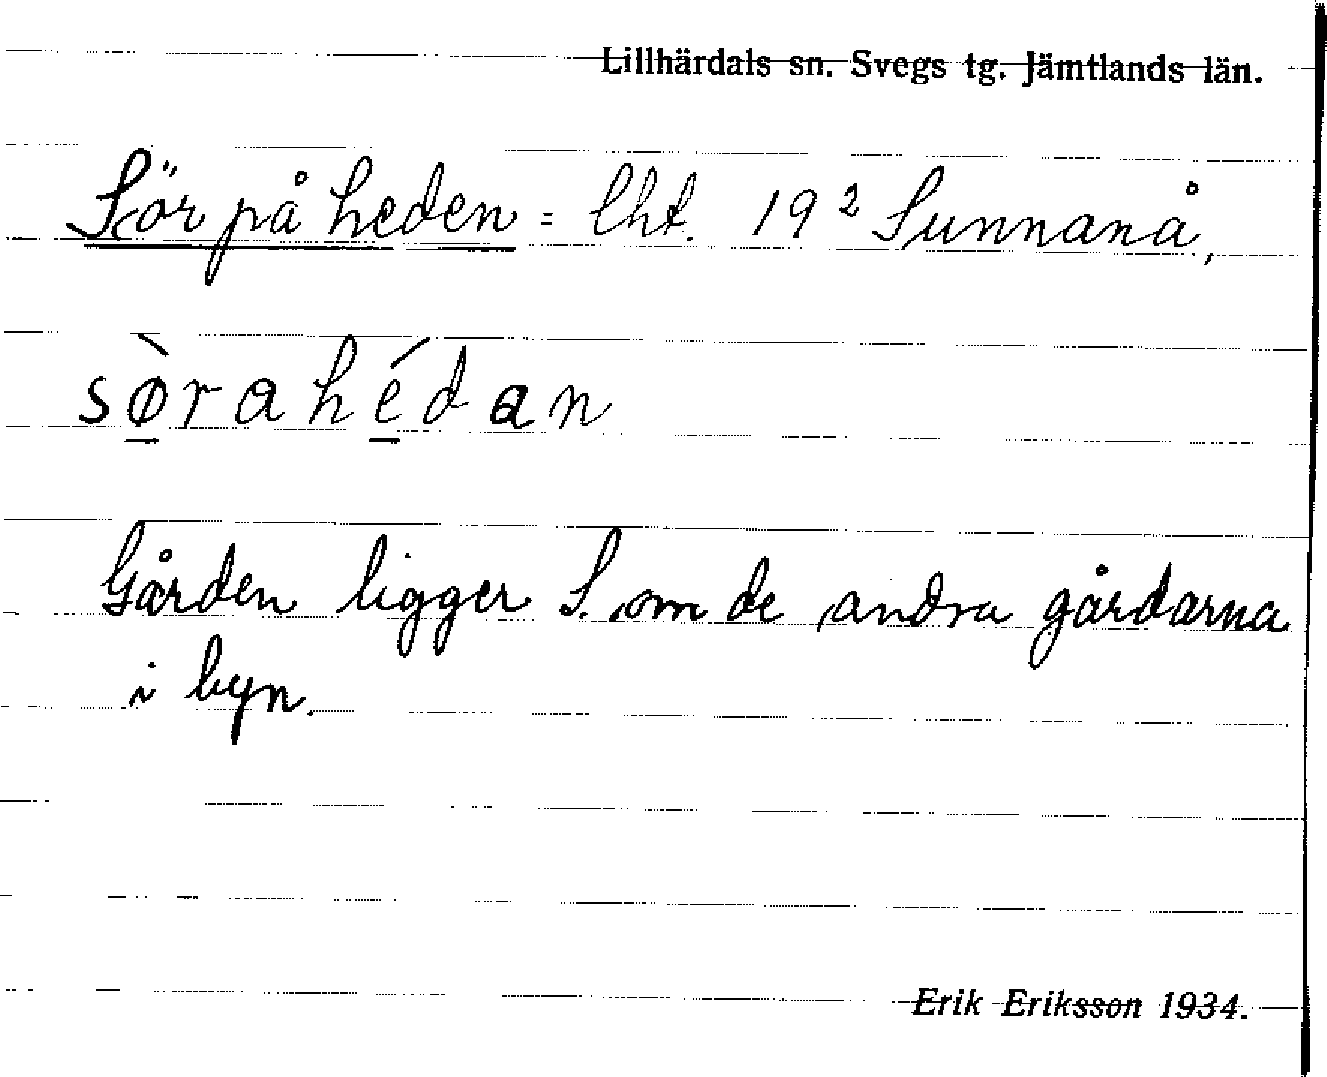 Lillhärdals sn. Svegs tg. Jämtlands län.
Sör på heden = lht. 19² Sunnanå,
sø̀rahédan
Gården ligger S. om de andra gårdarna
i byn.
Erik Eriksson 1934.